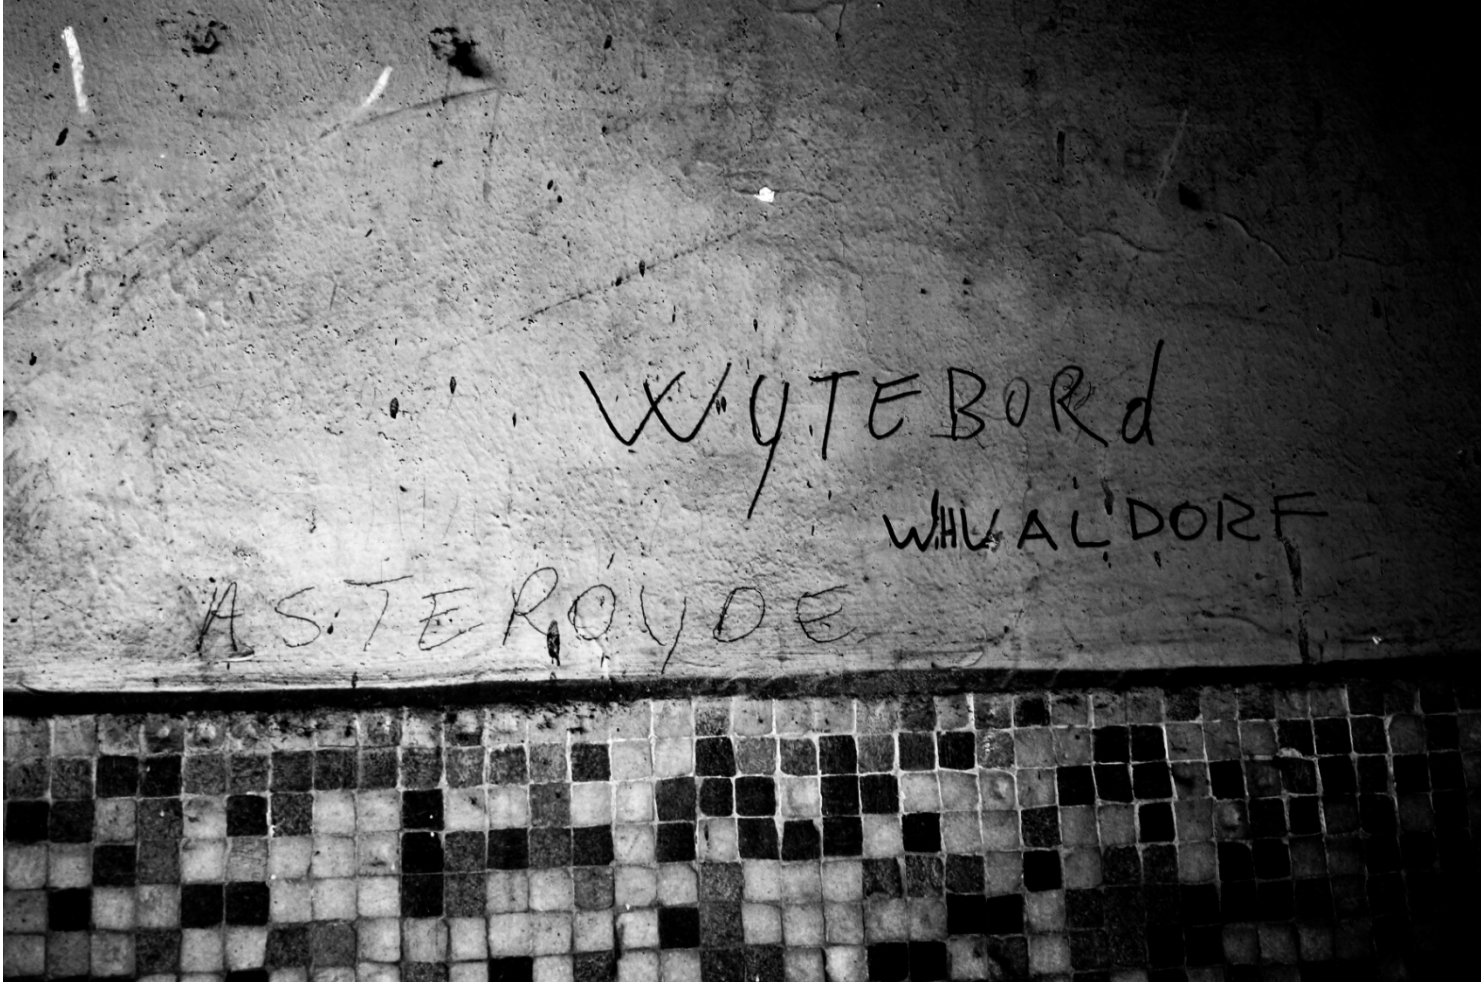 WYTEBORd
WHVALDORF
ASTEROYDE